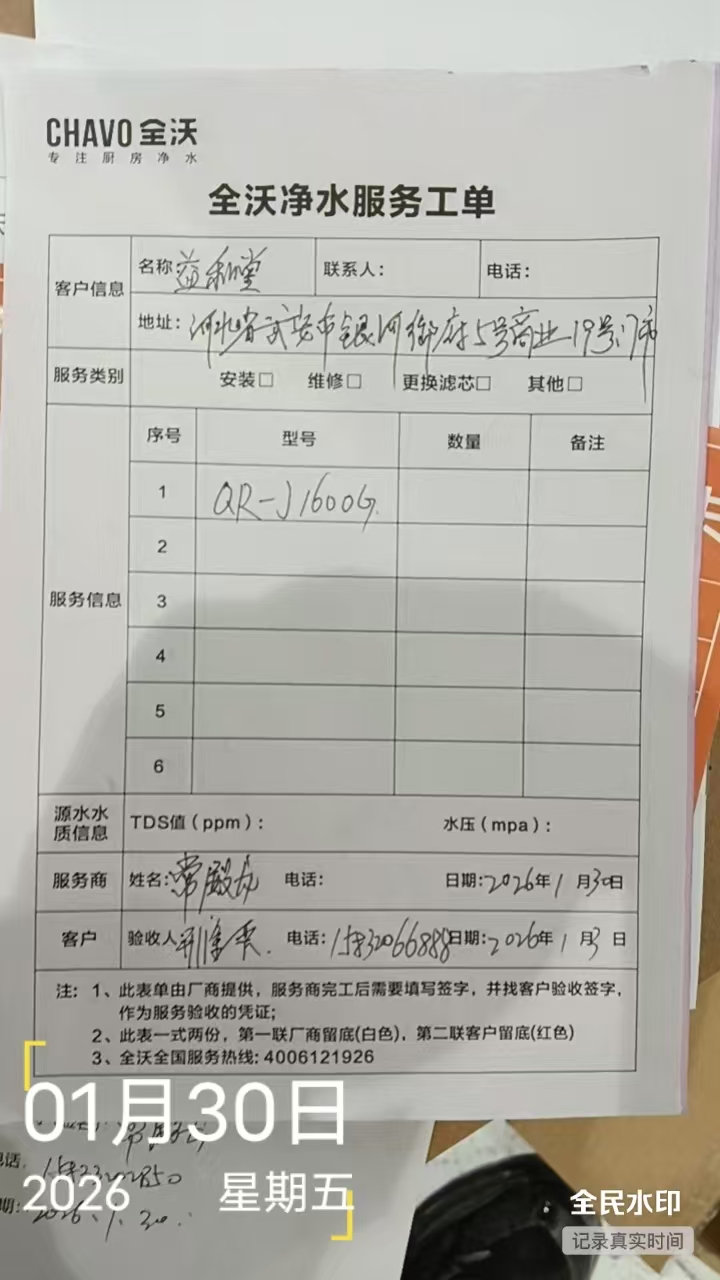 CHAVO 全沃
专注厨房净水
全沃净水服务工单
客户信息 名称 益和堂 联系人： 电话：
地址：河北省武安市银河御府5号商业19号门市
服务类别 安装□ 维修□ 更换滤芯□ 其他□
服务信息
序号 型号 数量 备注
1 QR-J1600G
2
3
4
5
6
源水水质信息 TDS值（ppm）： 水压（mpa）：
服务商 姓名：常殿龙 电话： 日期：2026年1月30日
客户 验收人 电话：15832066888 日期：2026年1月3日
注：1、此表单由厂商提供，服务商完工后需要填写签字，并找客户验收签字，
作为服务验收的凭证；
2、此表一式两份，第一联厂商留底(白色)，第二联客户留底(红色)
3、全沃全国服务热线：4006121926
01月30日
2026 星期五
电话
期：2026.1.30.
全民水印
记录真实时间